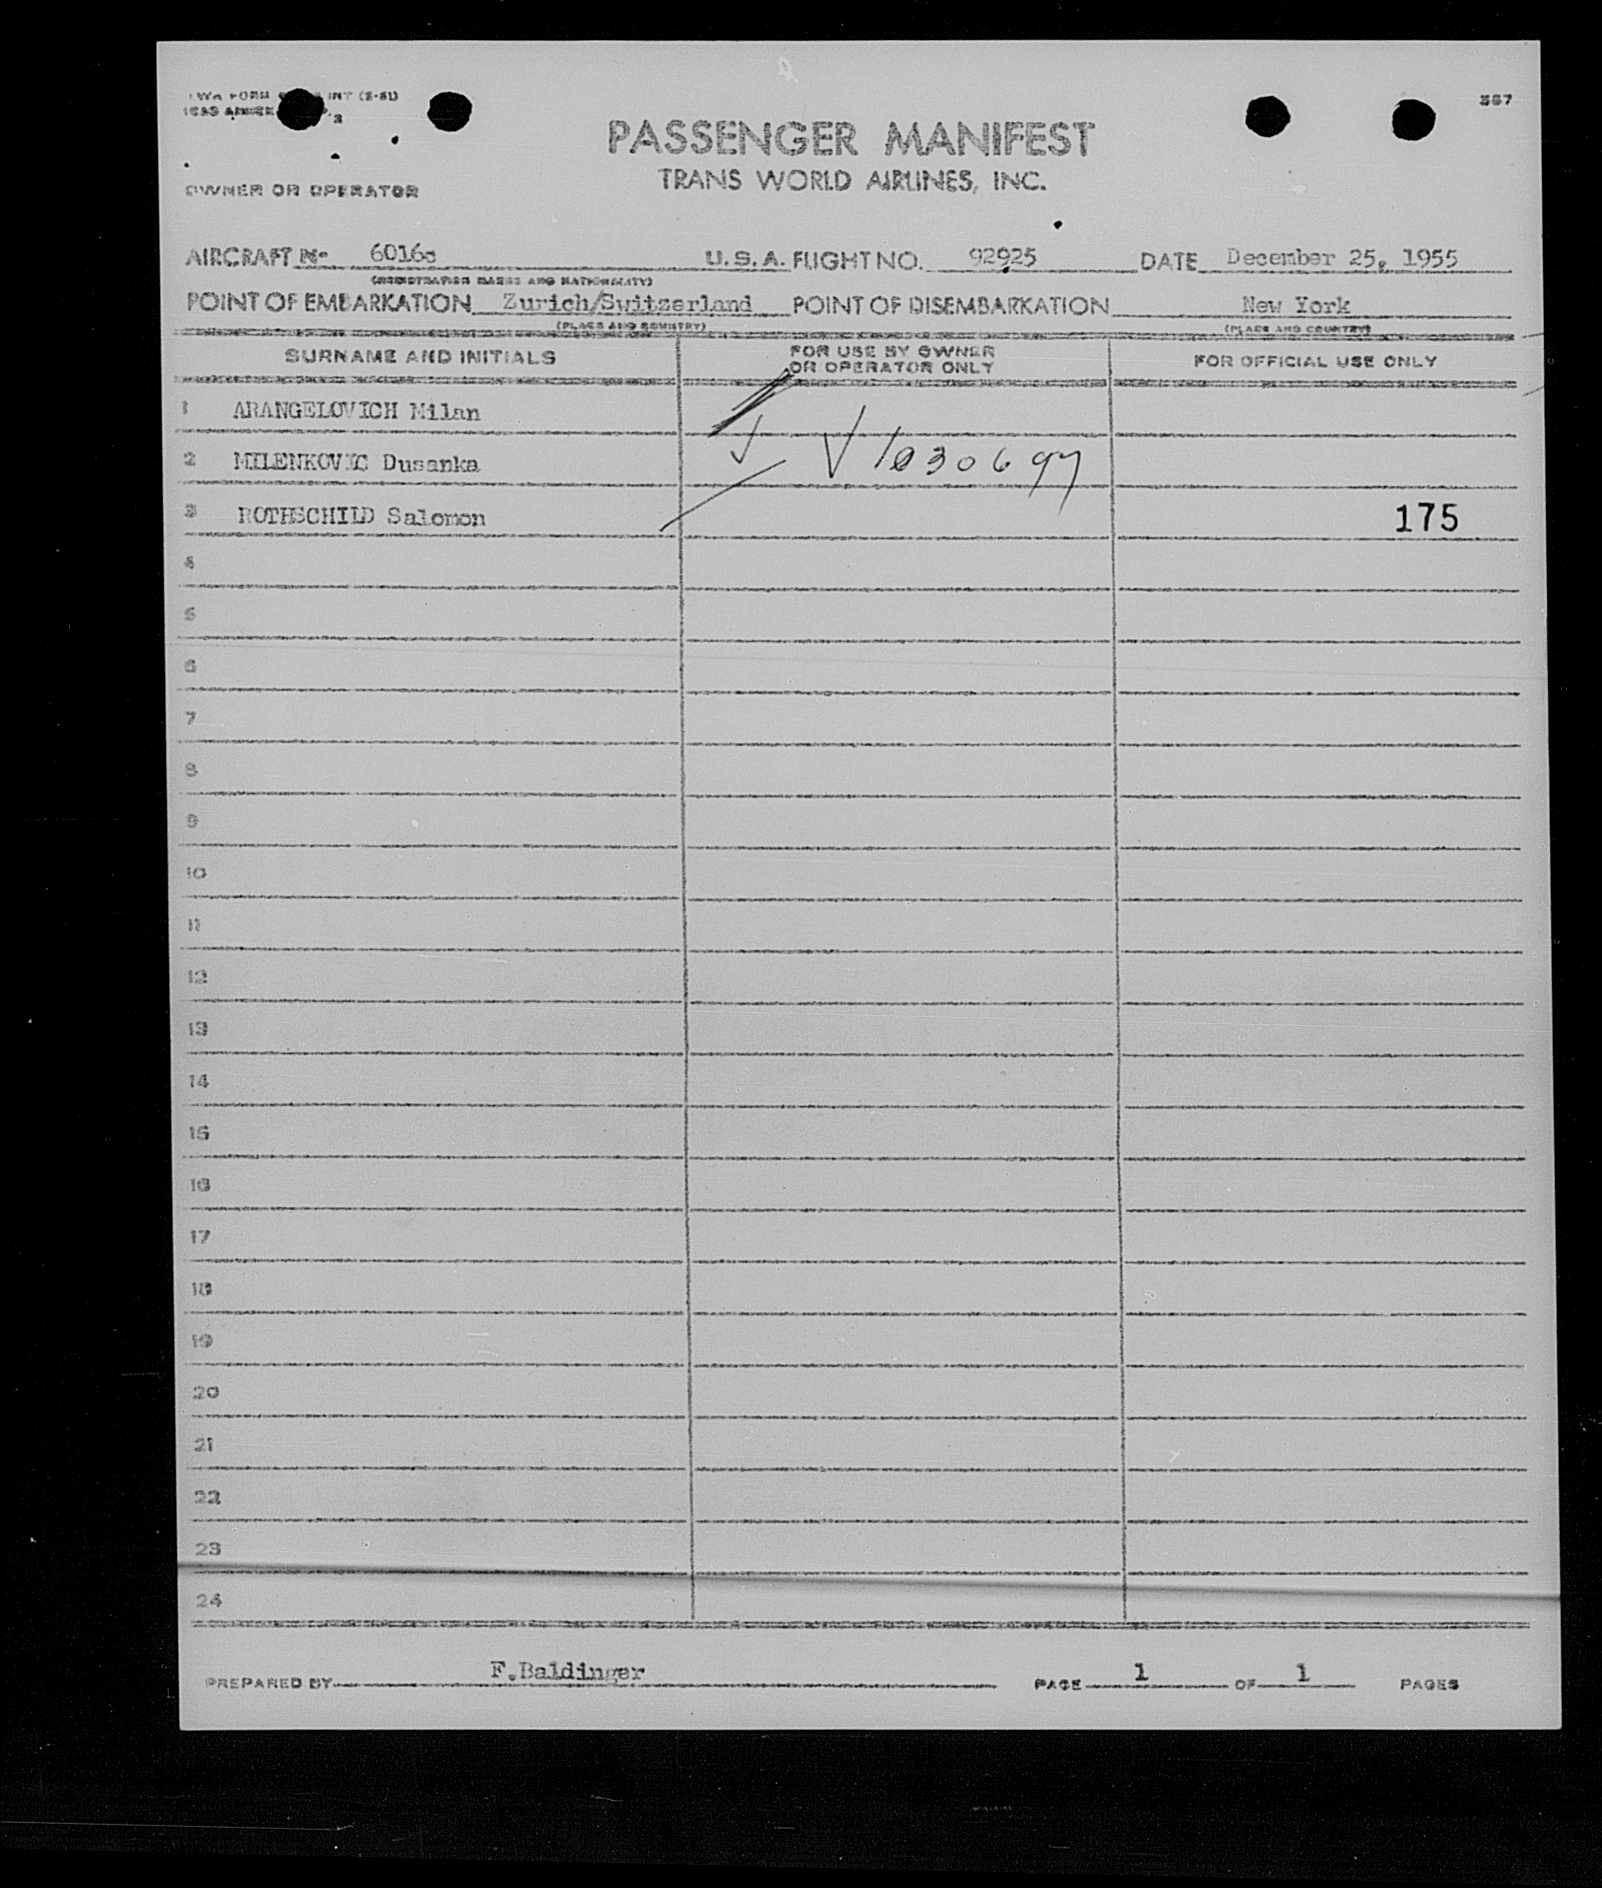 INT (2-51)
367
PASSENGER MANIFEST
TRANS WORLD AIRLINES, INC.
OWNER OR OPERATOR
AIRCRAFT No. 6016c U.S.A. FLIGHT NO. 92925 DATE December 25, 1955
(REGISTRATION MARKS AND NATIONALITY)
POINT OF EMBARKATION Zurich/Switzerland POINT OF DISEMBARKATION New York
(PLACE AND COUNTRY) (PLACE AND COUNTRY)
SURNAME AND INITIALS FOR USE BY OWNER OR OPERATOR ONLY FOR OFFICIAL USE ONLY
1 ARANGELOVICH Milan
2 MILENKOVIC Dusanka V 1030697
3 ROTHSCHILD Salomon 175
4
5
6
7
8
9
10
11
12
13
14
15
16
17
18
19
20
21
22
23
24
PREPARED BY F.Baldinger PAGE 1 OF 1 PAGES